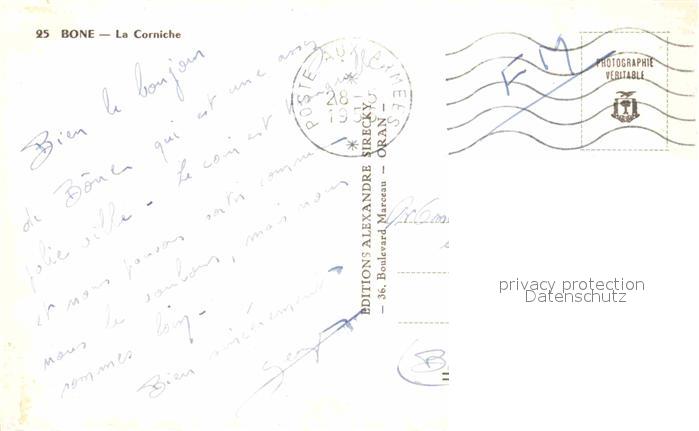 25 BONE — La Corniche
Bien le bonjour
de Bône qui est une assez
jolie ville - Le coin est tranquille
et nous pouvons sortir comme
nous le voulons, mais nous
sommes loin -
Bien sincèrement
POSTE AUX ARMEES
28 - 5
19
FM
PHOTOGRAPHIE
VÉRITABLE
EDITIONS ALEXANDRE SIRECKY
— 36, Boulevard Marceau — ORAN —
privacy protection
Datenschutz